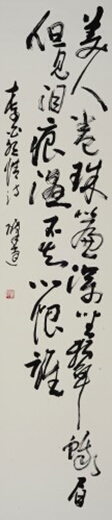 美人卷珠簾深坐顰蛾眉
但見泪痕濕不知心恨誰
李白怨情詩